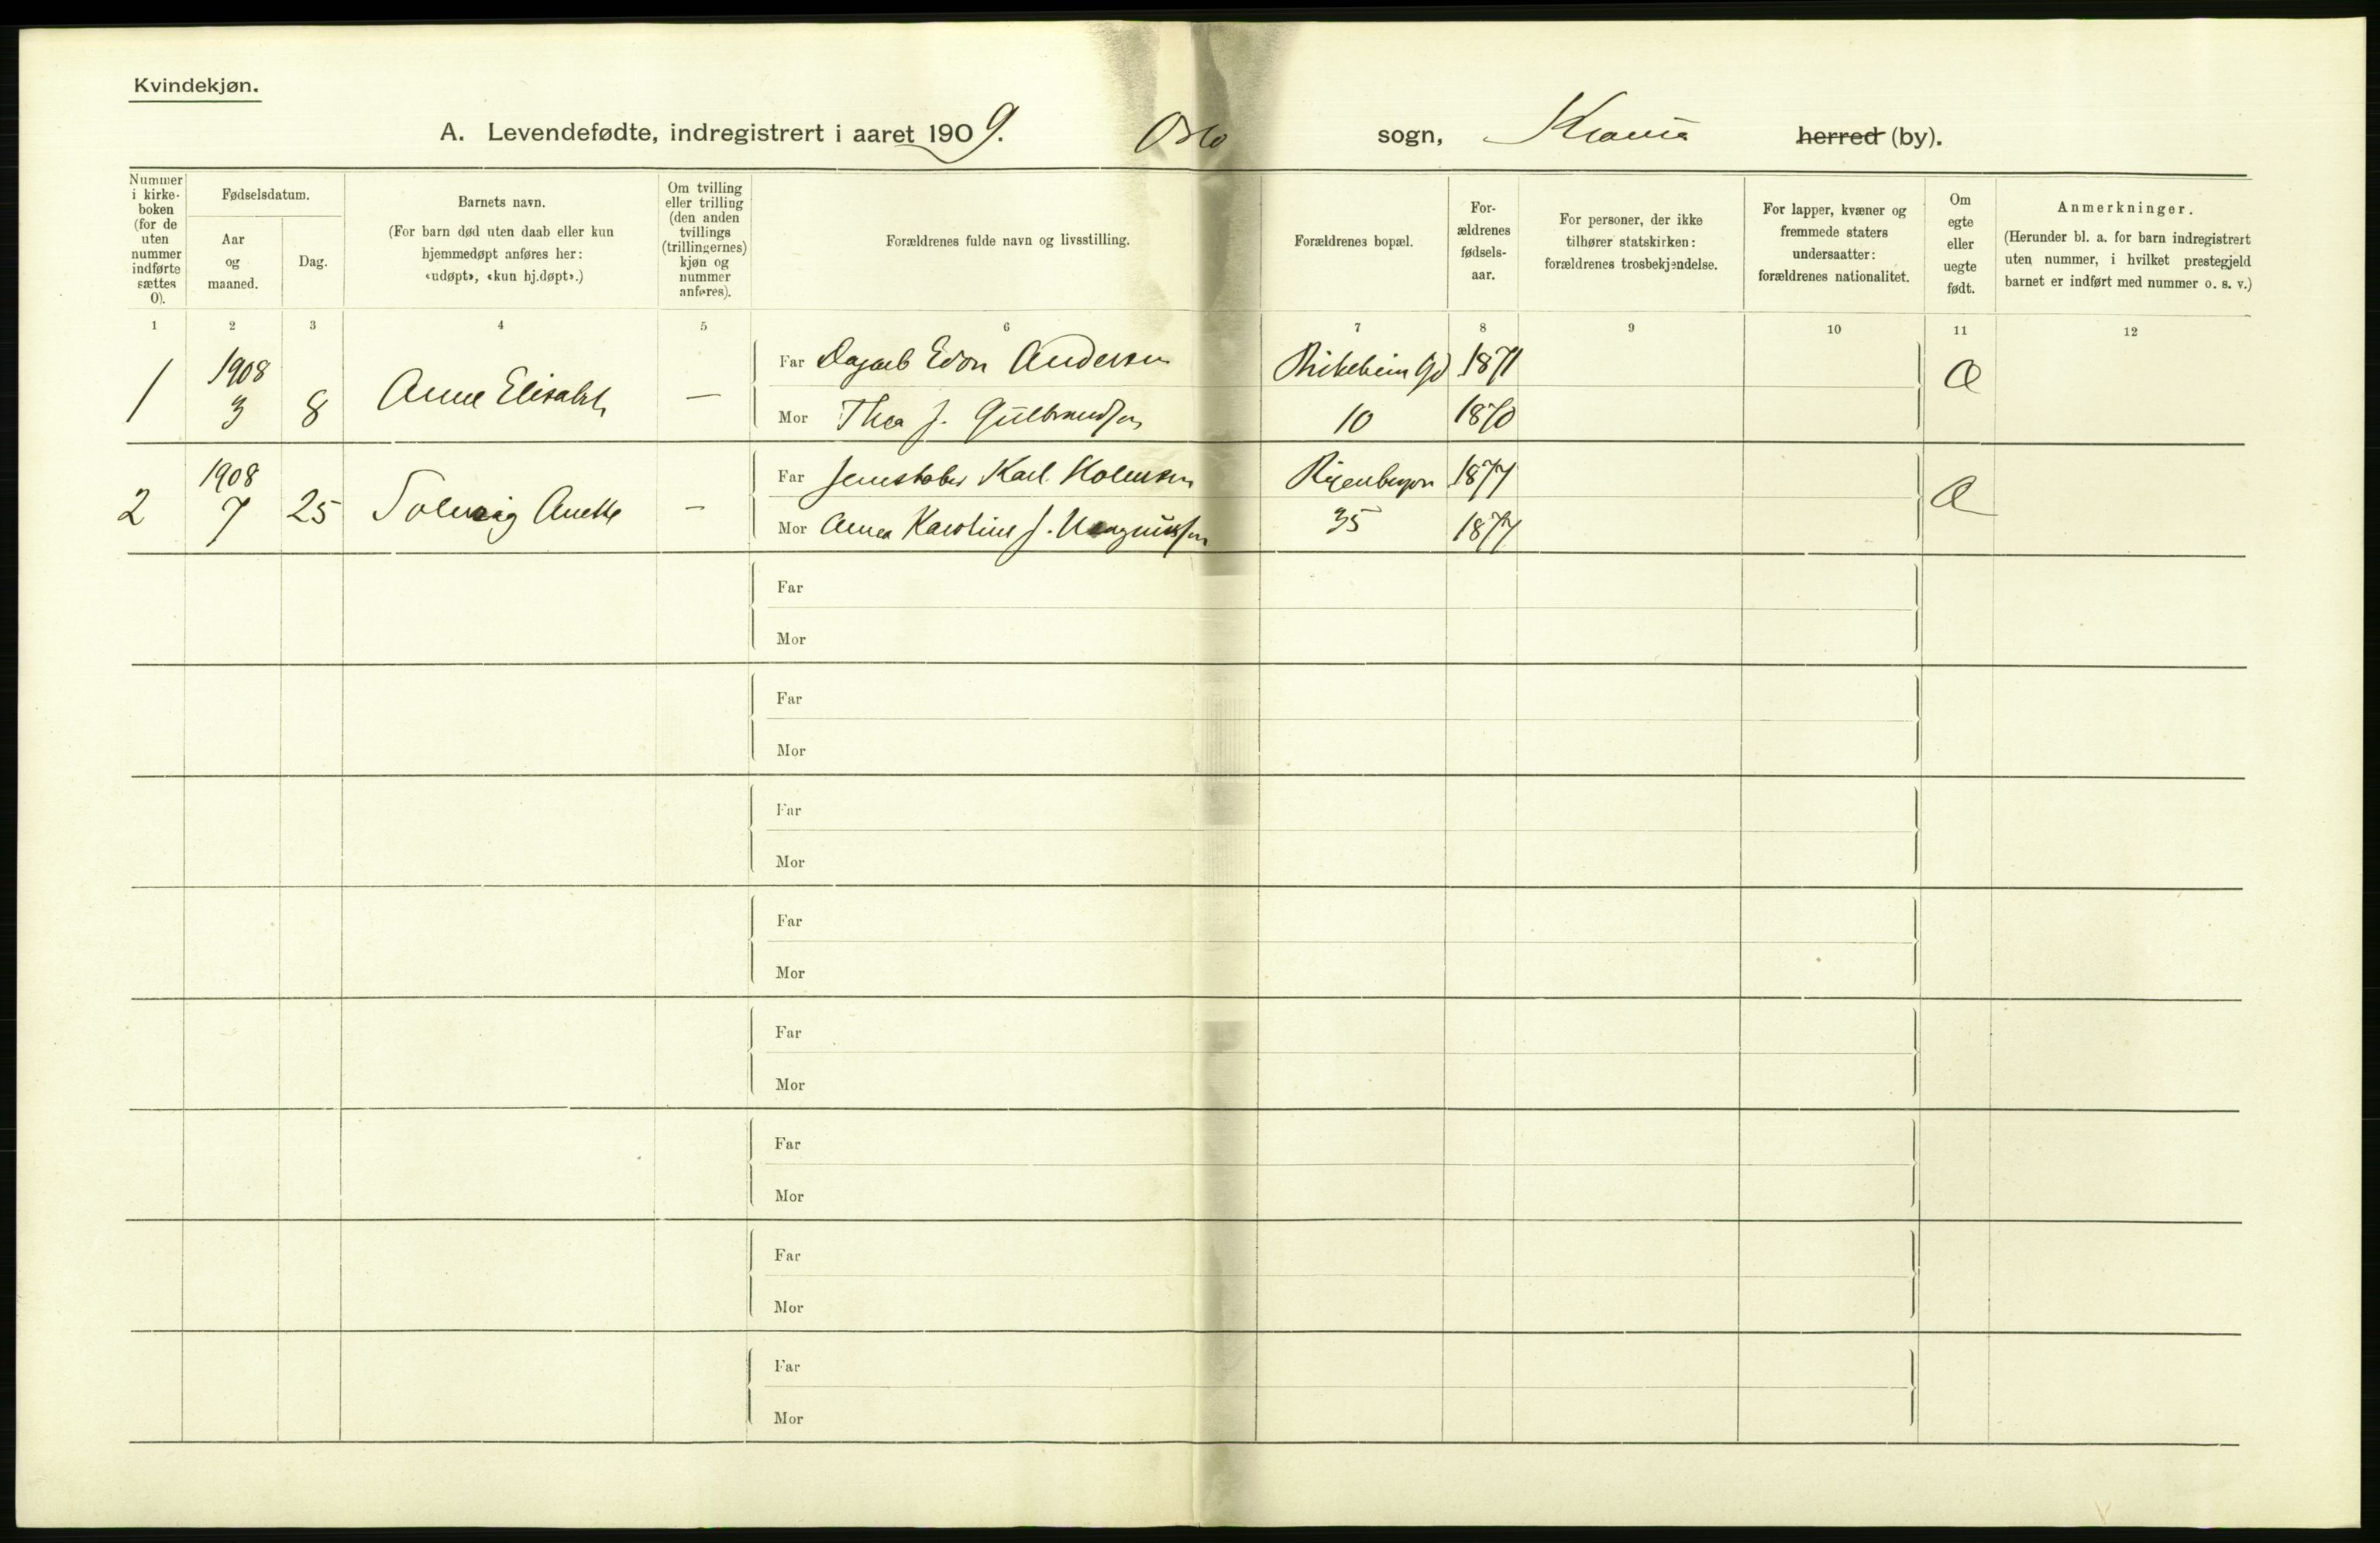 Kvindekjøn.
A. Levendefødte, indregistrert i aaret 1909. Oslo sogn, Krania herred (by).
Nummer i kirke-boken (for de uten nummer indførte sættes 0).
Fødselsdatum.
Aar og maaned.
Dag.
Barnets navn.
(For barn død uten daab eller kun hjemmedøpt anføres her: «udøpt», «kun hj.døpt».)
Om tvilling eller trilling (den anden tvillings (trillingernes) kjøn og nummer anføres).
Forældrenes fulde navn og livsstilling.
Forældrenes bopæl.
For-ældrenes fødsels-aar.
For personer, der ikke tilhører statskirken: forældrenes trosbekjendelse.
For lapper, kvæner og fremmede staters undersaatter: forældrenes nationalitet.
Om egte eller uegte født.
Anmerkninger.
(Herunder bl. a. for barn indregistrert uten nummer, i hvilket prestegjeld barnet er indført med nummer o. s. v.)
1 2 3 4 5 6 7 8 9 10 11 12
1 1908 3 8 Anne Elisabeth —
Far Edv. Andersen 1871 Æ
Mor Thea f. Gulbrandsen 10 1870
2 1908 7 25 Solveig Anette —
Far Jernstøber Karl Holmsen 1877 Æ
Mor Anna Karoline f. Magnussen 35 1877
Far
Mor
Far
Mor
Far
Mor
Far
Mor
Far
Mor
Far
Mor
Far
Mor
Far
Mor